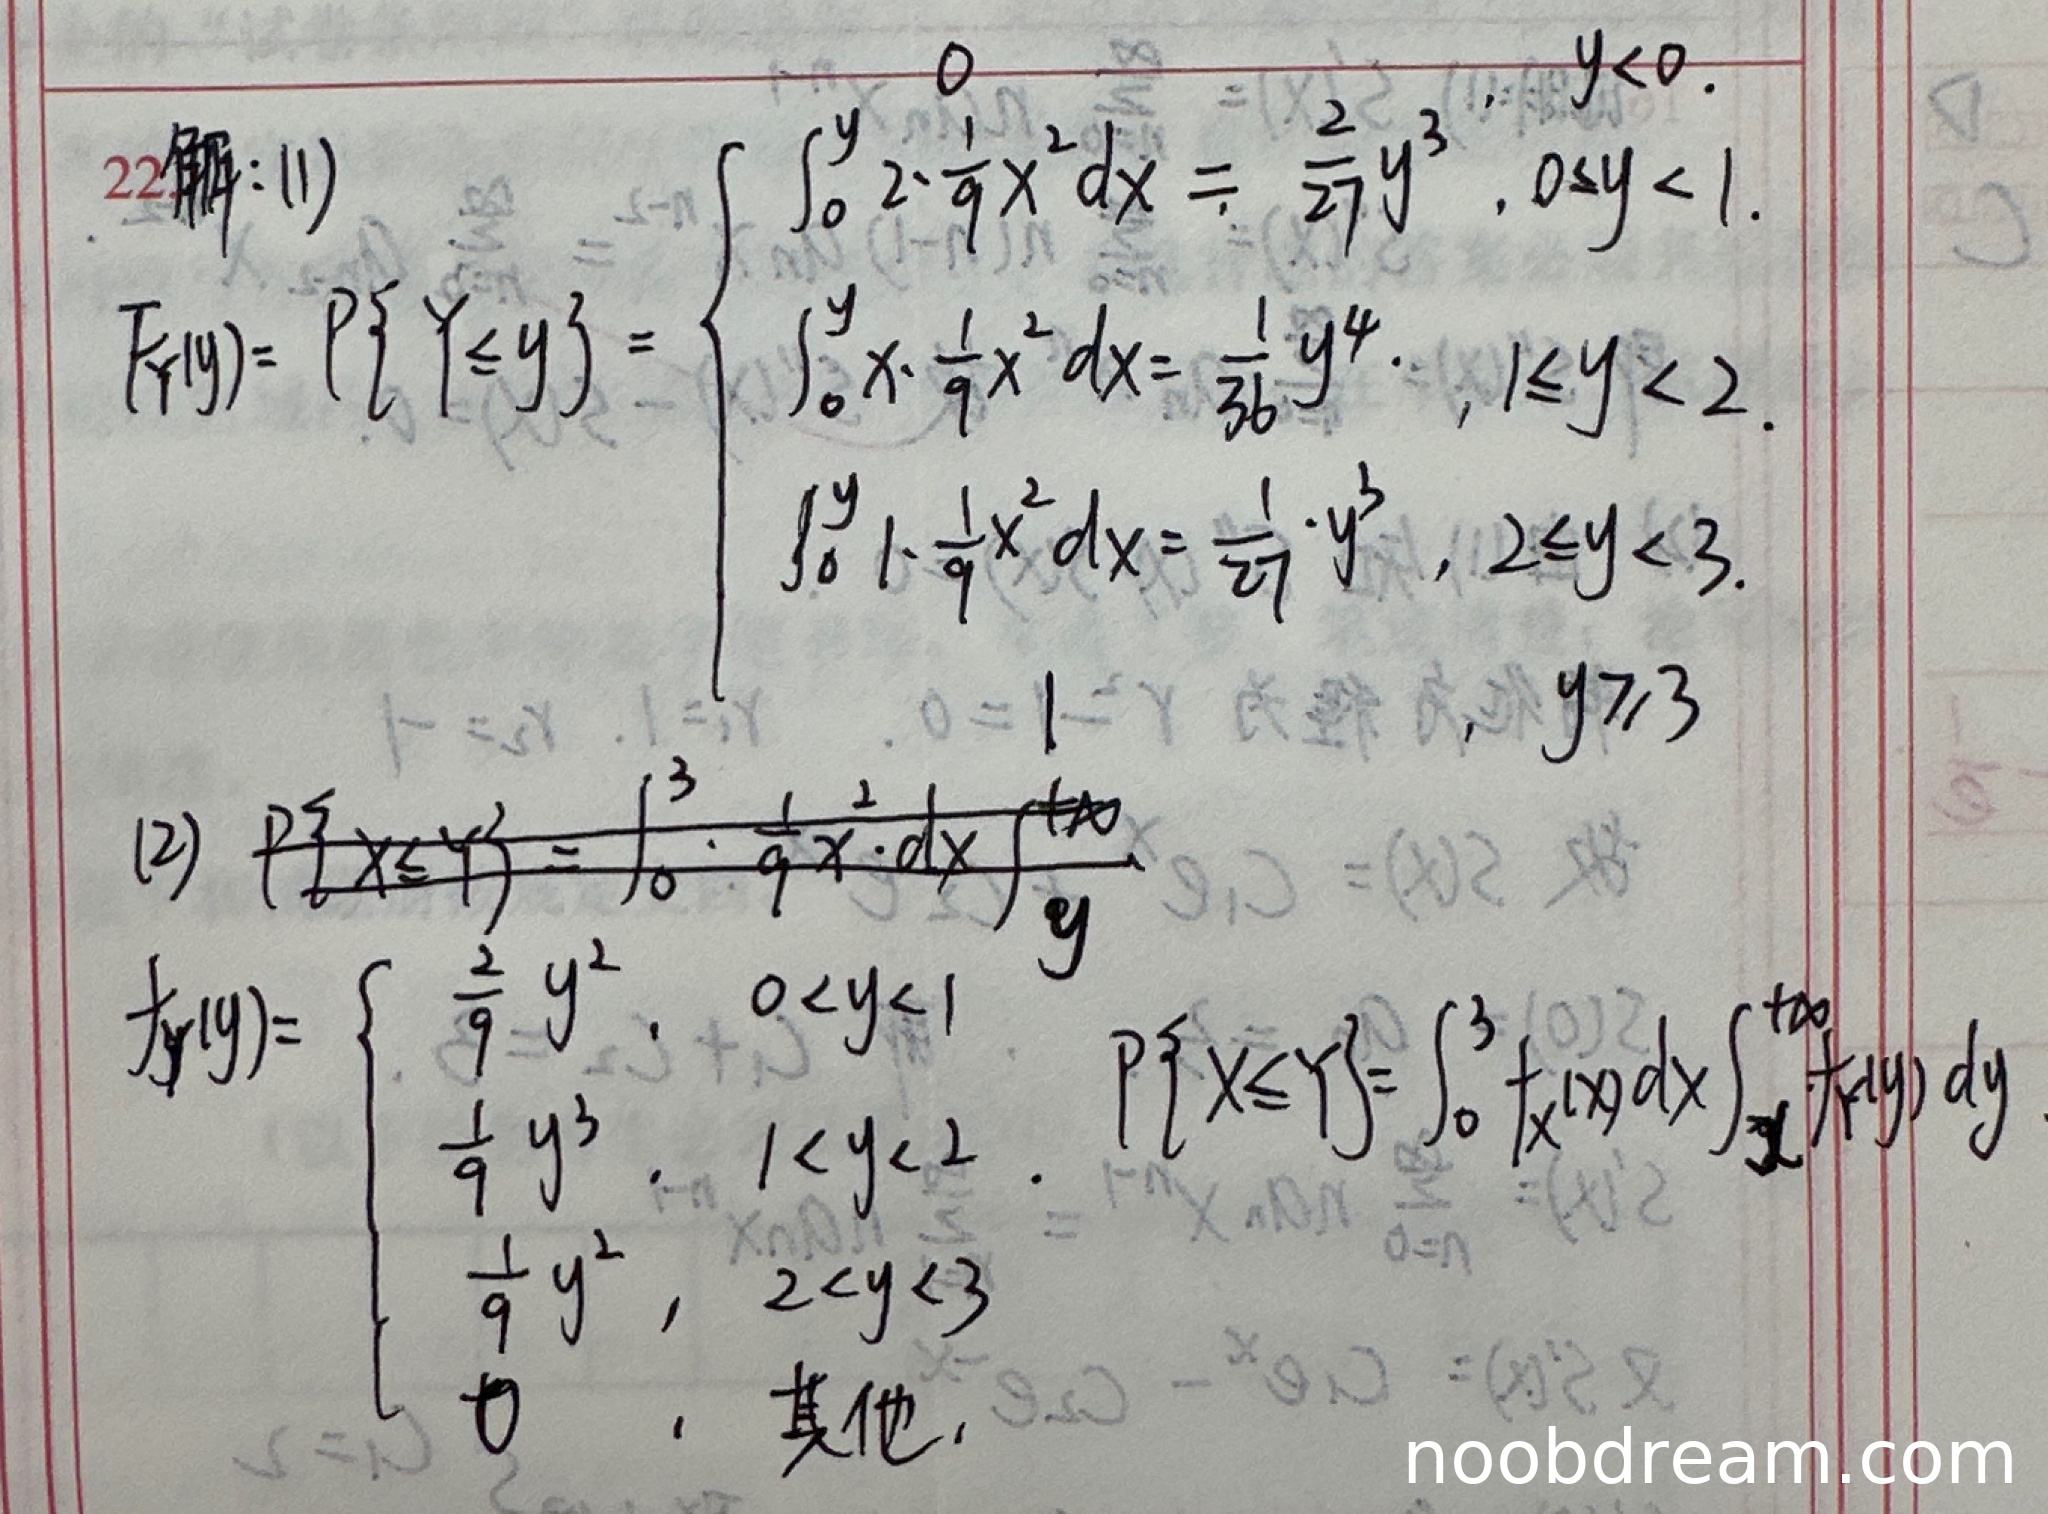 22. 解:(1)
F_Y(y) = P{Y≤y} = {
0 , y<0.
∫_0^y 2·1/9 x² dx = 2/27 y³ , 0≤y<1.
∫_0^y x·1/9 x² dx = 1/36 y⁴ , 1≤y<2.
∫_0^y 1·1/9 x² dx = 1/27·y³ , 2≤y<3.
1 , y≥3
(2) P{X≤Y} = ∫_0^3 · 1/9 x²·dx ∫_y^{+∞}
f_Y(y) = {
2/9 y² , 0<y<1
1/9 y³ , 1<y<2 .
1/9 y² , 2<y<3
0 , 其他.
P{X≤Y} = ∫_0^3 f_X(x)dx ∫_x^{+∞} f_Y(y) dy .
noobdream.com